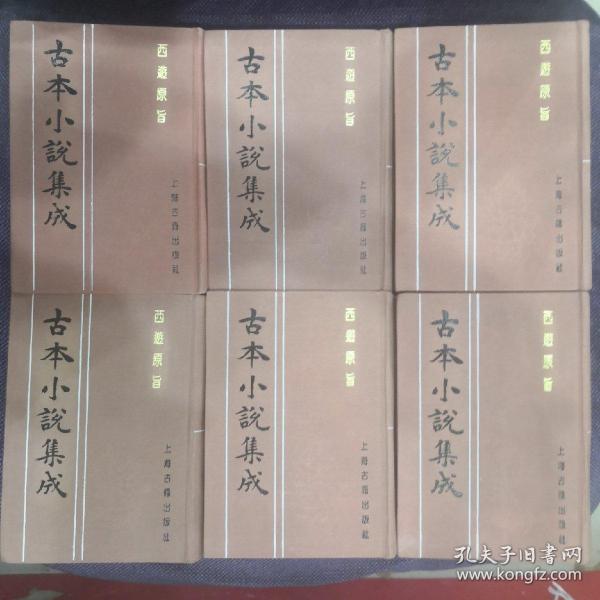 西遊原旨
古本小說集成
上海古籍出版社
西遊原旨
古本小說集成
上海古籍出版社
西遊原旨
古本小說集成
上海古籍出版社
西遊原旨
古本小說集成
上海古籍出版社
西遊原旨
古本小說集成
上海古籍出版社
西遊原旨
古本小說集成
上海古籍出版社
孔夫子旧书网
www.kongfz.com